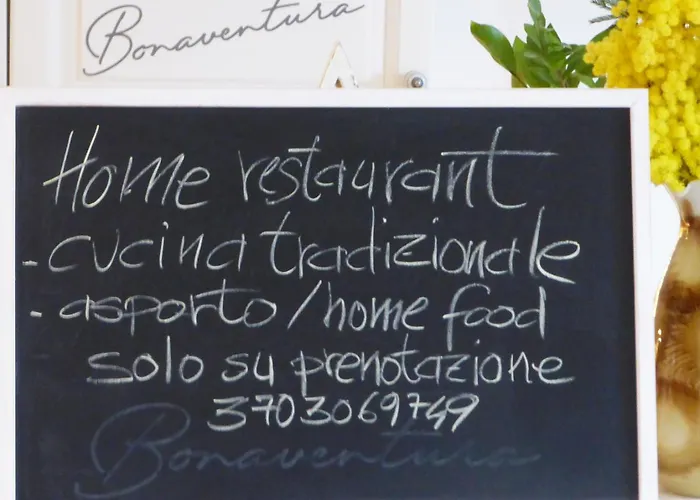 Bonaventura
Home restaurant
- cucina tradizionale
- asporto / home food
solo su prenotazione
3703069749
Bonaventura